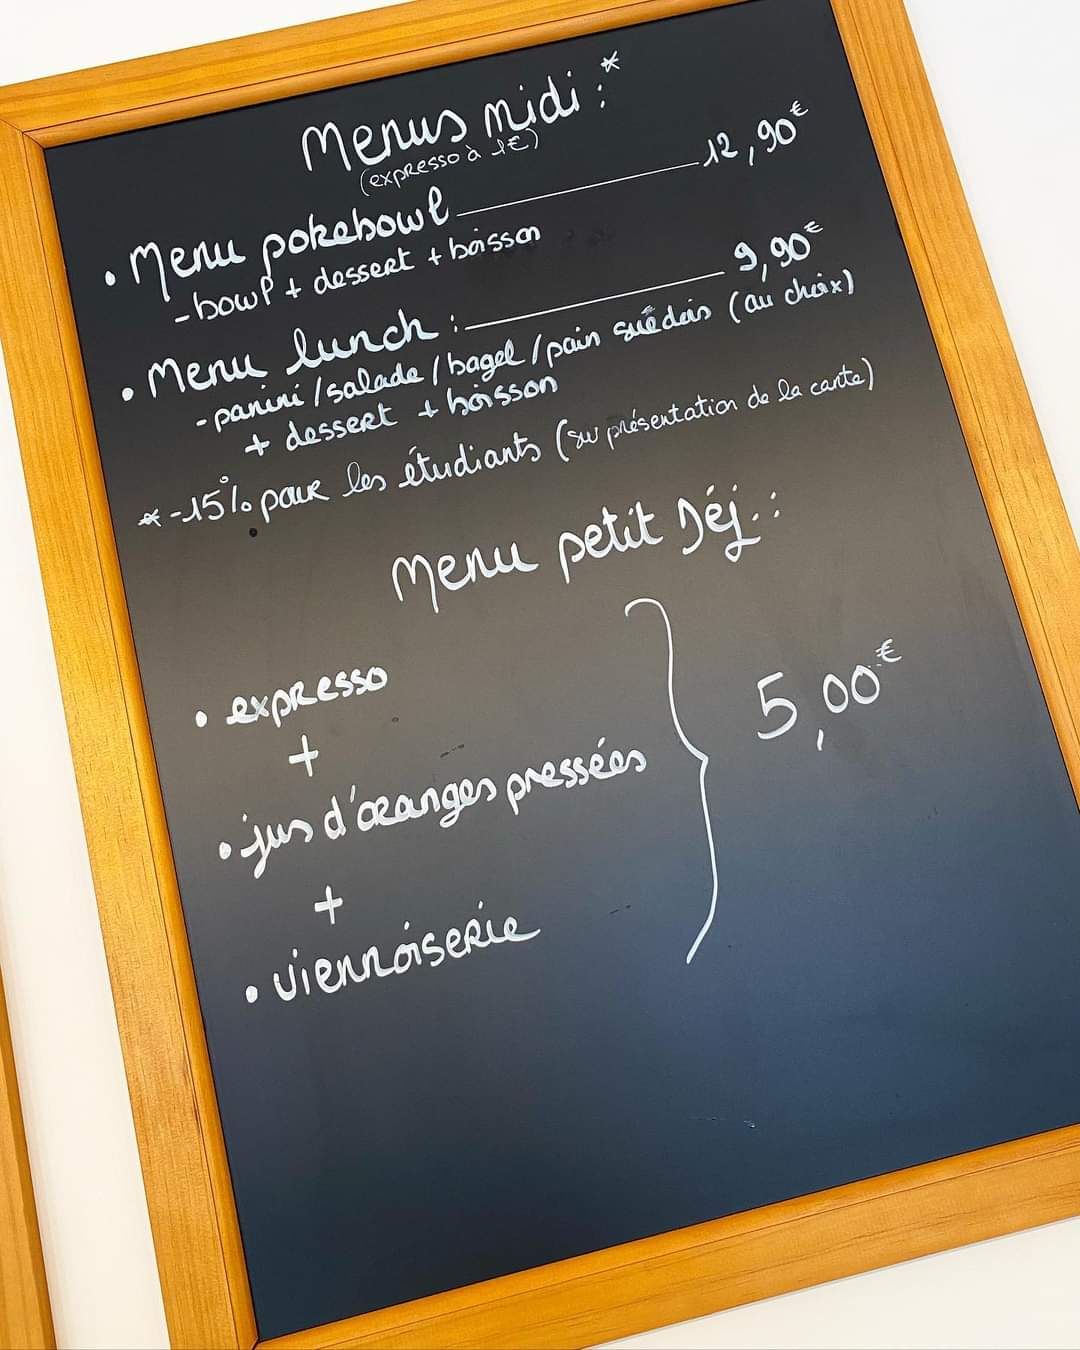 Menus midi :*
(expresso à 1€)
• Menu pokebowl 12,90€
- bowl + dessert + boisson
• Menu lunch : 9,90€
- panini/salade/bagel/pain suédois (au choix)
+ dessert + boisson
* -15% pour les étudiants (sur présentation de la carte)
Menu petit Déj. :
• expresso
+
• jus d'oranges pressées
+
• viennoiserie
5,00€